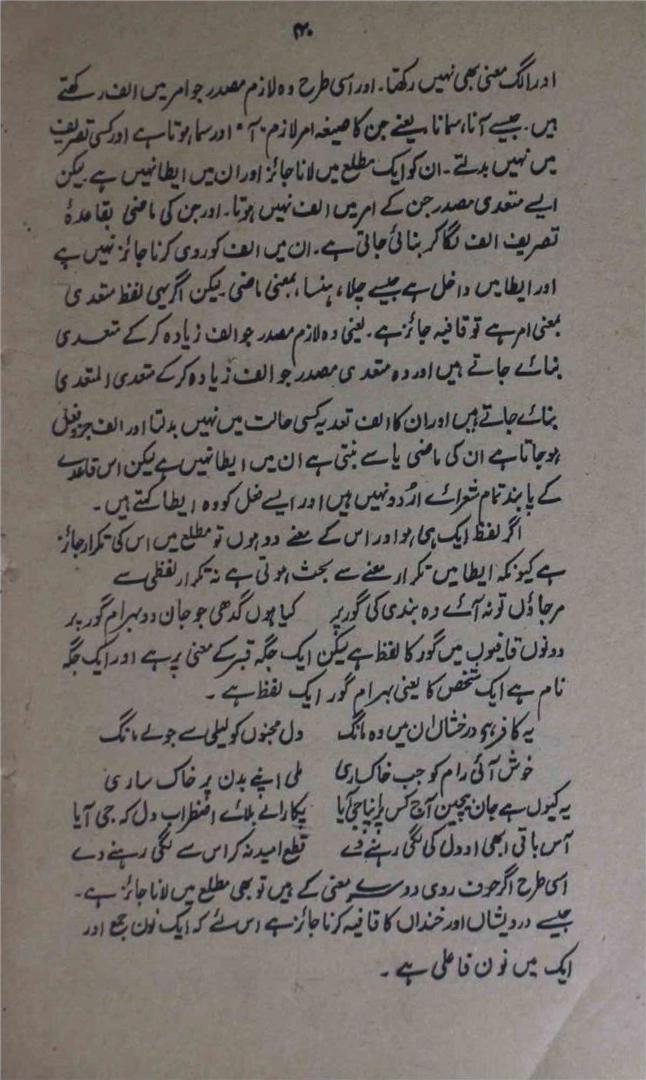 ۴۰
اور الگ معنی بھی نہیں رکھتا۔ اور اسی طرح وہ لازم مصدر جو امر میں الف رکھتے
ہیں۔ جیسے آنا، سمانا یعنے جن کا صیغہ امر لازم "آ" اور سما ہوتا ہے اور کسی تصریف
میں نہیں بدلتے۔ ان کو ایک مطلع میں لانا جائز اور ان میں ایطا نہیں ہے لیکن
ایسے متعدی مصدر جن کے امر میں الف نہیں ہوتا۔ اور جن کی ماضی بقاعدۂ
تصریف الف لگا کر بنائی جاتی ہے۔ ان میں الف کو روی کرنا جائز نہیں ہے
اور ایطا میں داخل ہے جیسے چلا، ہنسا، بمعنی ماضی لیکن اگر یہی لفظ متعدی
بمعنی امر ہے تو قافیہ جائز ہے۔ یعنی وہ لازم مصدر جو الف زیادہ کر کے متعدی
بنائے جاتے ہیں اور وہ متعدی مصدر جو الف زیادہ کر کے متعدی المتعدی
بنائے جاتے ہیں اور ان کا الف تعدیہ کسی حالت میں نہیں بدلتا اور الف جزو فعل
ہو جاتا ہے ان کی ماضی یا سے بنتی ہے ان میں ایطا نہیں ہے لیکن اس قاعدے
کے پابند تمام شعرائے اردو نہیں ہیں اور ایسے فعل کو وہ ایطا کہتے ہیں۔
اگر لفظ ایک ہی ہو اور اس کے معنے دو ہوں تو مطلع میں اس کی تکرار جائز
ہے کیونکہ ایطا میں تکرار معنے سے بحث ہوتی ہے نہ تکرار لفظی سے
مر جاؤں تو نہ آئے وہ بندی کی گور پر کیا ہوں گدھی جو جان دو بہرام گور پر
دونوں قافیوں میں گور کا لفظ ہے لیکن ایک جگہ قبر کے معنی پر ہے اور ایک جگہ
نام ہے ایک شخص کا یعنی بہرام گور ایک لفظ ہے۔
یہ کافر ہو درخشاں ان میں وہ مانگ دل مجنوں کو لیلیٰ سے جو لے مانگ
خوش آئی رام کو جب خاکساری ملی اپنے بدن پر خاک ساری
یہ کیوں ہے جان بیچین آج کس پر اپنا جی آیا پکارا لے بلائے اضطراب دل کہ جی آیا
آس باقی ابھی او دل کی لگی رہنے دے قطع امید نہ کر اس سے لگی رہنے دے
اسی طرح اگر حرف روی دوسرے معنی کے ہیں تو بھی مطلع میں لانا جائز ہے۔
جیسے درویشاں اور خنداں کا قافیہ کرنا جائز ہے اس لئے کہ ایک نون جمع اور
ایک میں نون فاعلی ہے۔